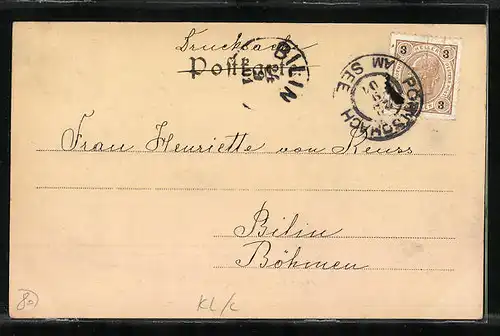 Drucksache
Postkarte
BILIN
PÖRTSCHACH AM SEE
3 3
3
Frau Henriette von Reuss
Bilin
Böhmen
80
KL/c